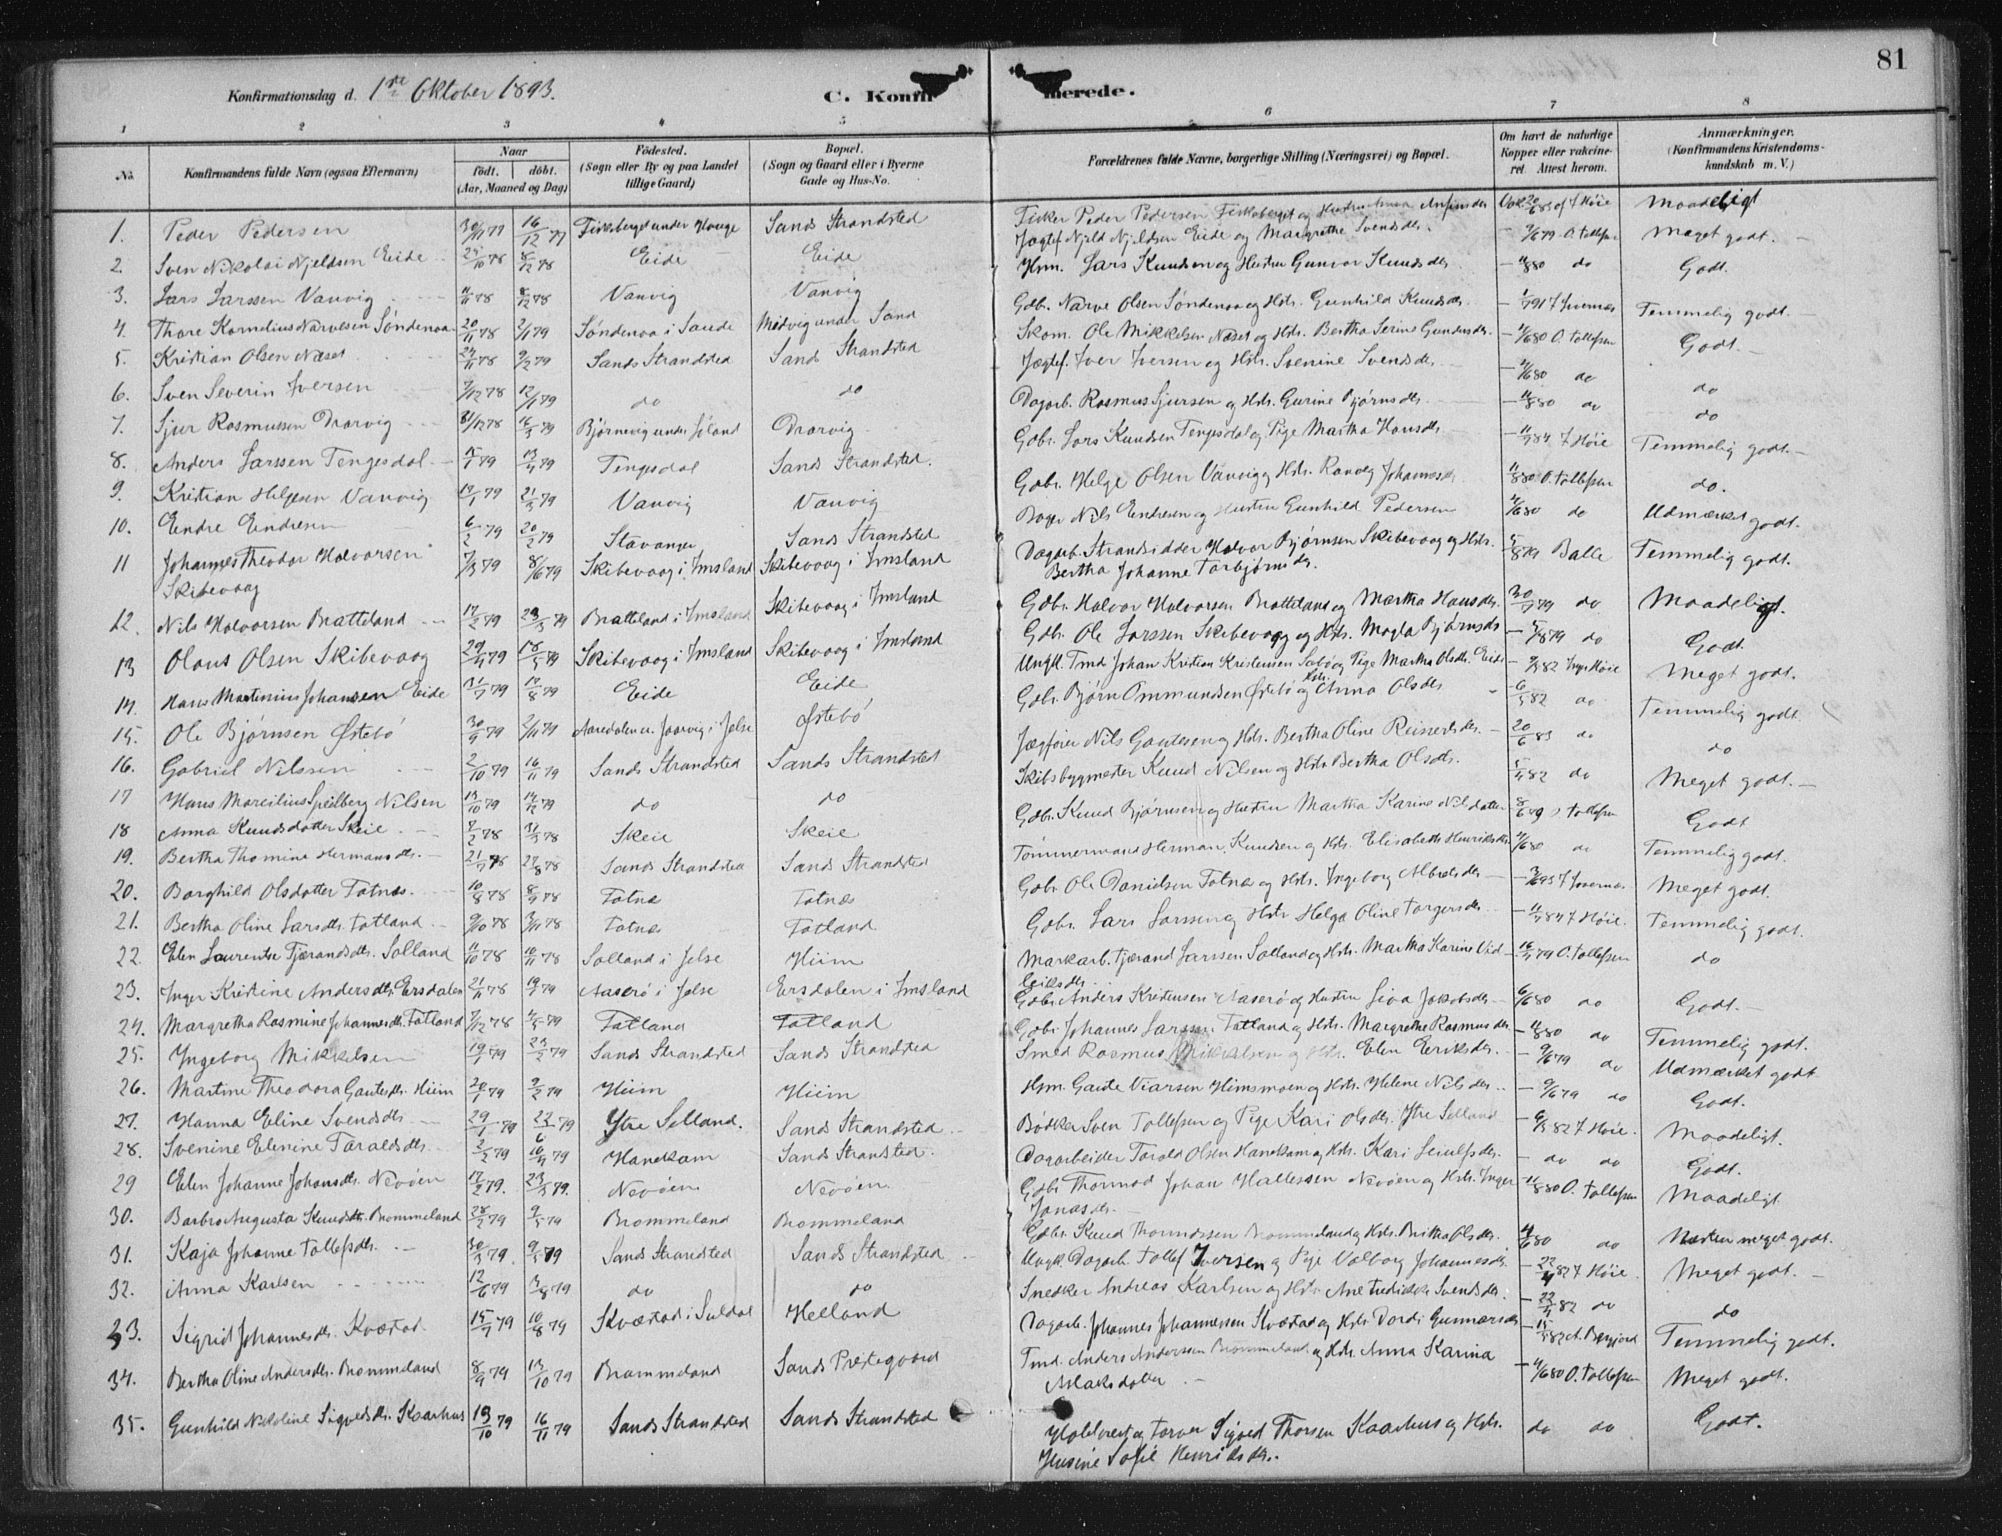 81
Konfirmationsdag d. 1ste Oktober 1893.
C. Konfir merede.
1 2 3 4 5 6 7 8
No. Konfirmandens fulde Navn (ogsaa Efternavn) Naar födt. döbt. (Aar, Maaned og Dag) Födested. (Sogn eller By og paa Landet tillige Gaard) Bopæl. (Sogn og Gaard eller i Byerne Gade og Hus-No. Forældrenes fulde Navne, borgerlige Stilling (Næringsvei) og Bopæl. Om havt de naturlige Kopper eller vakcineret. Attest herom. Anmærkninger. (Konfirmandens Kristendomskundskab m. V.)
1. Peder Pedersen 30/11 77 16/12 77 Fiskeberget under Hauge Sands Strandsted Fisker Peder Pedersen Fiskeberget og Hustru Anfinsdr Maadeligt
2. Sven Nikolai Njeldsen Eide 8/12 78 Eide Eide Jagtef Njeld Njeldsen Eide og Margrethe Svendsdr. O. Tollefsen Meget godt.
3. Lars Larssen Vanvig 11/11 78 8/12 78 Vanvig Vanvig Hm. Lars Knudsen og Hustru Gunvor Knudsdr do Godt.
4. Thore Kornelius Narvesen Söndenaa 20/11 78 2/1 79 Söndenaa i Saude Medvig under Sand Gdbr. Narve Olsen Söndenaa og Hstr. Gunhild Knudsdr. Temmelig godt.
5. Kristian Olsen Næset 24/11 78 9/2 79 Sands Strandsted Sands Strandsted Skom. Ole Mikkelsen Næset og Hstr. Bertha Serine Gundersdr. O. Tollefsen Godt.
6. Sven Severin Iversen 7/12 78 12/1 79 do do Jægtef. Iver Iversen og Hstr. Svenine Svendsdr. do do
7. Sjur Rasmussen Drarvig 31/12 78 16/3 79 Björnevig under Jöland Drarvig Dagarb. Rasmus Sjursen og Hstr. Gurine Björnsdtr. do do
8. Anders Larssen Tengesdal 13/4 79 Tengesdal Sands Strandsted. Gdbr. Lars Knudsen Tengesdal og Pige Martha Hansdr. Höie Temmelig godt.
9. Kristian Helgesen Vanvig 17/1 79 21/3 79 Vanvig Vanvig Gdbr. Helge Olsen Vanvig og Hstr. Ranveg Johannesdr O. Tollefsen do.
10. Endre Endresen 6/2 79 20/2 79 Stavanger Sands Strandsted Nils Endresen og Hustru Gunhild Pedersen do Udmærket godt.
11 Johannes Theodor Halvorsen Skibevaag 7/3 79 8/6 79 Skibevaag i Imsland Skibevaag i Imsland Dagarb. Strandsidder Halvor Björnsen Skibevaag og Hstr. Bertha Johanne Torbjörnsdr. Balle Temmelig godt.
12. Nils Halvorsen Bratteland 17/2 79 23/3 79 Bratteland i Imsland Skibevaag i Imsland Gdbr. Halvor Halvorsen Bratteland og Martha Hansdr. do Maadeligt.
13 Olaus Olsen Skibevaag 29/4 79 18/5 79 Skibevaag i Imsland Skibevaag i Imsland Gdbr. Ole Larssen Skibevaag og Hstr. Magla Björnsdr do Godt
14. Hans Martinius Johansen Eide 31/7 79 17/8 79 Eide Eide Ungk. Tmd Johan Kristian Kristensen og Pige Martha Olsdtr. Eide Höie Meget godt.
15. Ole Björnsen Östebö 30/9 79 2/11 79 Aaredalen u. Jaarvig i Jelse Östebö Gdbr. Björn Ommundsen Östebö og Hstr. Anna Olsdr do Temmelig godt.
16. Gabriel Nilssen 2/10 79 16/11 79 Sands Strandsted Sands Strandsted Jægtfører Nils Gautesen og Hstr. Bertha Oline Reinertsdr. do do
17 Hans Marcilius Speilberg Nilsen 13/10 79 14/12 79 do do Skibsbygmester Knud Nilsen og Hstr. Bertha Olsdr. do Meget godt.
18 Anna Knudsdotter Skeie 2/2 78 31/3 78 Skeie Skeie Gdbr. Knud Björnsen og Hustru Martha Karine Nilsdatter Tollefsen Godt
19. Bertha Thomine Hermansdtr. 21/7 78 27/8 78 Sands Strandsted Sands Strandsted Tömmermand Herman Knudsen og Hstr. Elisabeth Henriksdr. do Temmelig godt.
20. Borghild Olsdotter Totnæs 10/8 78 8/9 78 Totnæs Totnæs Gdbr. Ole Danielsen Totnæs og Hstr. Ingeborg Albretsdr Meget godt.
21. Bertha Oline Larsdtr. Totland 9/10 78 3/11 78 Totnæs Totland Gdbr. Lars Larssen og Hstr. Helga Oline Torgersdr. Höie. Temmelig godt.
22. Elen Laurentse Tjærandsdtr. Solland 11/10 78 10/11 78 Solland i Jelse Hiim Markarb. Tjærand Larssen Solland og Hstr. Martha Karine Vid Eriksdr. O. Tollefsen do
23. Inger Kristine Andersdtr. Ersdalen 21/11 78 19/1 79 Aaserö i Jelse Ersdalen i Imsland Gdbr. Anders Kristensen Aaserö og Hustru Siva Jakobsdr. do Godt.
24. Margretha Rasmine Johannesdtr. Totland 7/12 78 4/5 79 Totland Totland Gdbr Johannes Larssen Totland og Hstr. Margrethe Rasmusdr. do Temmelig godt.
25. Ingeborg Mikkelsen 19/1 79 23/2 79 Sands Strandsted Sands Strandsted Smed Rasmus Mikkelsen og Hstr. Elen Eeriksdr. do Udmærket godt.
26. Martine Theodora Gautesdtr. Hiim 20/1 79 2/2 79 Hiim Hiim Hm. Gaute Viarsen Himsmoen og Hstr. Helene Nilsdr. do Godt.
27. Hanna Eline Svendsdtr. 29/1 79 Ytre Solland. Sands Strandsted. Bödker Sven Tollefsen og Pige Kari Olsdtr. Ytre Solland Höie. Maadeligt.
28. Svenine Elenine Taraldsdtr. 2/2 79 16/4 79 Hanekam Sands Strandsted. Dagarbeider Torald Olsen Hanekam og Hstr. Kari Leiulfsdr. do do Godt.
29 Elen Johanne Johansdtr. Nevöen 17/2 79. 23/3 79. Nevöen Nevöen Gdbr Thormod Johan Hallessen Nevöen og Hstr. Inger Jonasdr. O. Tollefsen Maadeligt
30. Barbro Augusta Knudsdtr. Brommeland 28/2 79 9/5 79 Brommeland Brommeland Gdbr. Knud Thormodsen Brommeland og Hstr. Britha Olsdr. do Næsten meget godt.
31. Kaja Johanne Tollefsdtr. 30/3 79. 9/5 79 Sands Strandsted Sands Strandsted Ungk. Dagarb. Tollef Iversen og Pige Valborg Johannesdr. Höie. Meget godt.
32. Anna Karlsen 12/6 79 3/8 79 do do Snedker Andreas Karlsen og Hstr. Ane Fredrikke Svendsdr. 22/4 82 do do
33. Sigrid Johannesdtr. Kvæstad. 15/7 79 10/8 79 Kvæstad i Suldal Helland Dagarb. Johannes Johannessen Kvæstad og Hstr. Dordi Gunnarsdr Temmelig godt.
34. Bertha Oline Andersdtr. Brommeland 8/9 79 13/10 79 Brommeland Sands Prestegaard Tmd. Anders Andersen Brommeland og Hstr. Anna Karina Aslaksdatter O. Tollefsen Meget godt.
35. Gunhild Nikoline Sigvedsdtr. Kaarhus 19/10 79 16/11 79 Sands Strandsted Sands Strandsted Sigved Thorsen Kaarhus og Hstr. Husine Sofie Henriksdr. do do Godt.